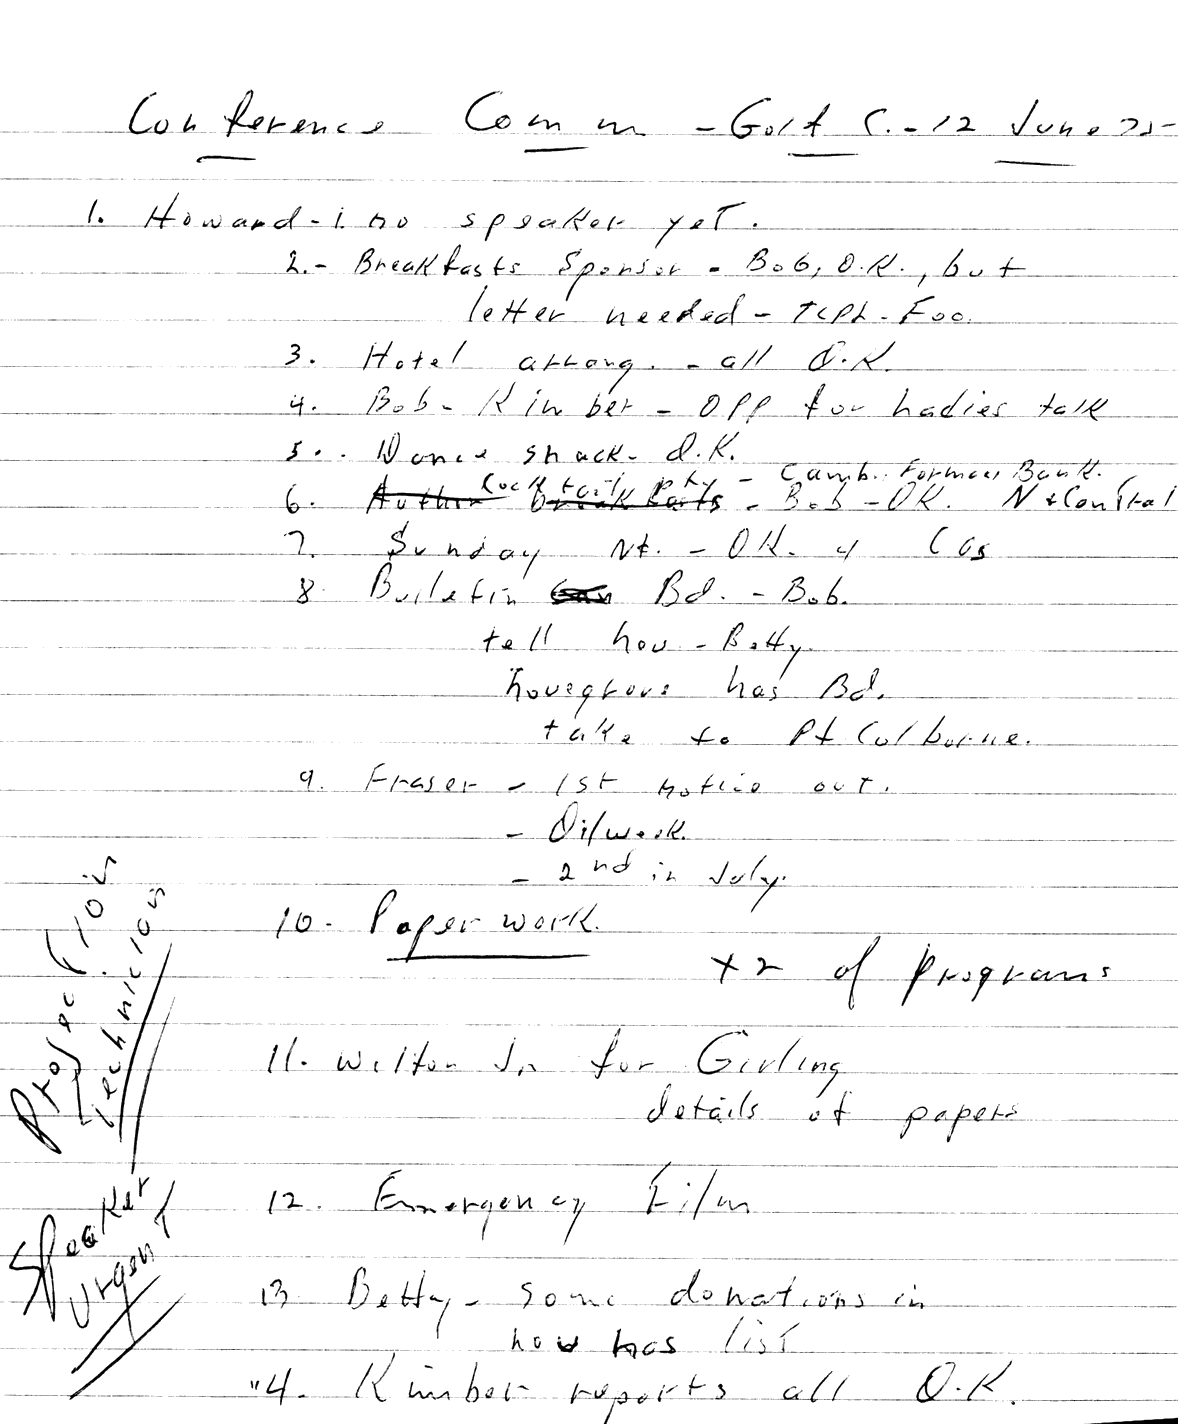 Conference Comm - Golf C. - 12 June 75
1. Howard - 1. no speaker yet.
2. - Breakfasts Sponsor - Bob, O.K., but
letter needed - TCPL - Foo.
3. Hotel arrang. - all O.K.
4. Bob - Kimber - OPP for ladies talk
5. Dance snack - O.K.
Cocktail pty - Camb. Former Bank.
6. - Bob - OK. N
7. Sunday Nt. - OK. 4
8. Bulletin Bd. - Bob.
tell how - Betty.
has Bd.
take to Pt Colborne.
9. Fraser - 1st notice out.
- Oilweek.
- 2nd in July.
10. Paper work.
x 2 of programs
Projection
Technician
11. Welton Jn for Girling
details of papers
12. Emergency Film
Speaker
Urgent
13 Betty - some donations in
now has list
14. Kimber reports all O.K.